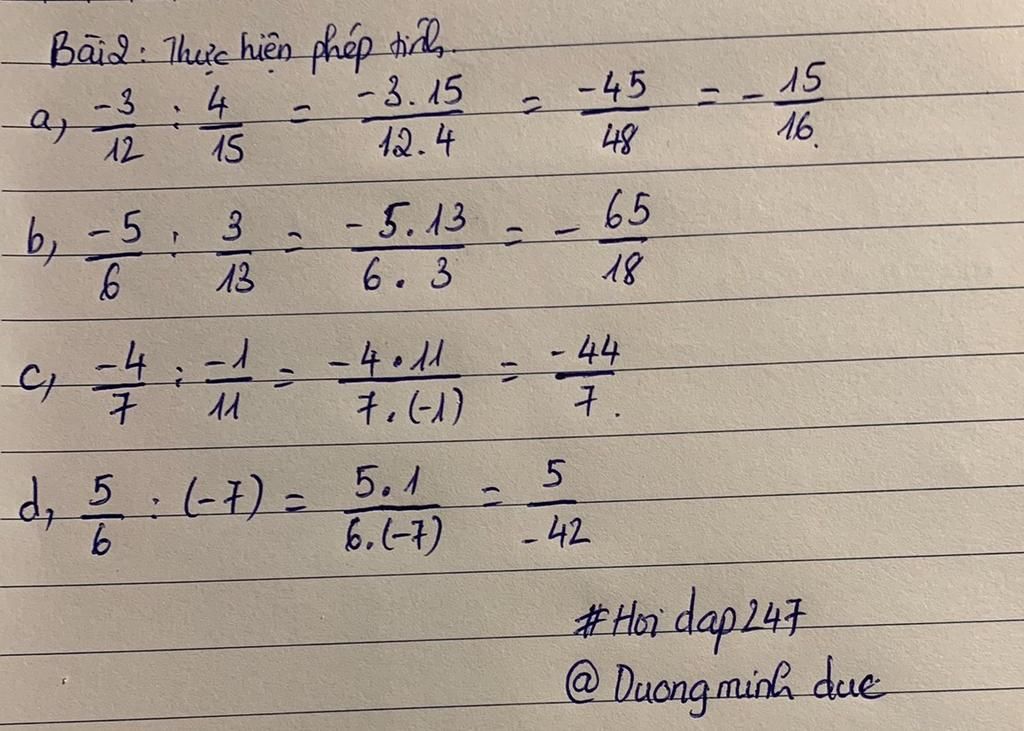 Bài 2: Thực hiện phép tính.
a, -3/12 : 4/15 = -3.15/12.4 = -45/48 = - 15/16.
b, -5/6 : 3/13 = -5.13/6.3 = - 65/18
c, -4/7 : -1/11 = -4.11/7.(-1) = -44/7.
d, 5/6 : (-7) = 5.1/6.(-7) = 5/-42
#Hoi dap247
@ Duongminh duc